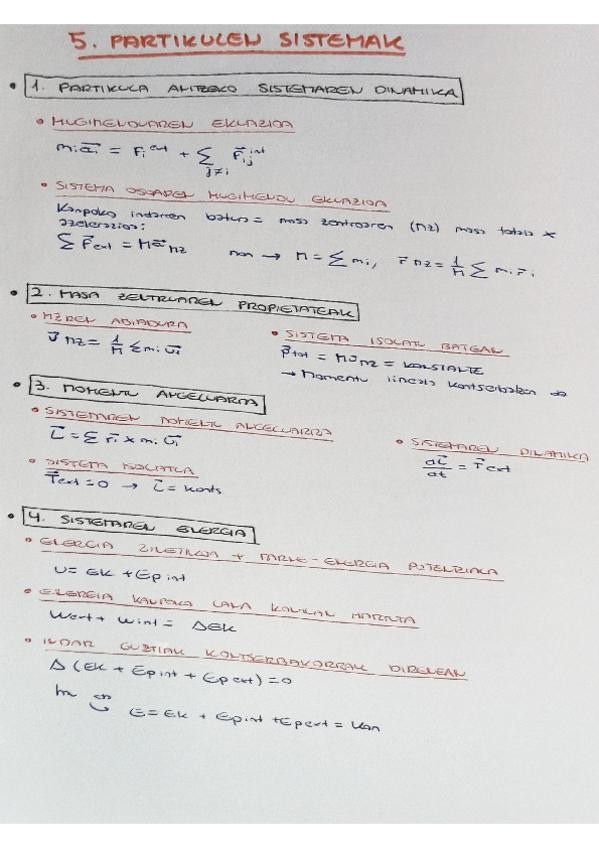 5. PARTIKULEN SISTEMAK
• 1. PARTIKULA ANITZEKO SISTEMAREN DINAMIKA
• MUGIMENDUAREN EKUAZIOA
mᵢa⃗ᵢ = Fᵢᵉˣᵗ + Σ_{j≠i} F⃗ᵢⱼⁱⁿᵗ
• SISTEMA OSOAREN MUGIMENDU EKUAZIOA
Kanpoko indarren batura = masa zentroaren (MZ) masa totala ×
azelerazioa:
ΣF⃗ext = Ma⃗MZ non → M = Σmᵢ, r⃗MZ = 1/M Σmᵢr⃗ᵢ
• 2. MASA ZENTRUAREN PROPIETATEAK
• MZREN ABIADURA
v⃗MZ = 1/M Σmᵢv⃗ᵢ
• SISTEMA ISOLATU BATEAN
p⃗tot = MvMZ = KONSTANTE
→ Momentu lineala kontserbatzen da
• 3. MOMENTU ANGELUARRA
• SISTEMAREN MOMENTU ANGELUARRA
L⃗ = Σr⃗ᵢ × mᵢv⃗ᵢ
• SISTEMAREN DINAMIKA
dL⃗/dt = τ⃗ext
• SISTEMA ISOLATUA
τ⃗ext = 0 → L⃗ = konts
• 4. SISTEMAREN ENERGIA
• ENERGIA ZINETIKOA + BARNE-ENERGIA POTENTZIALA
U = EK + Epint
• ENERGIA KANPOKO LANA KONTUAN HARTUTA
Wext + Wint = ΔEK
• INDAR GUZTIAK KONTSERBAKORRAK DIRENEAN
Δ(EK + Epint + Epext) = 0
E = EK + Epint + Epext = kon